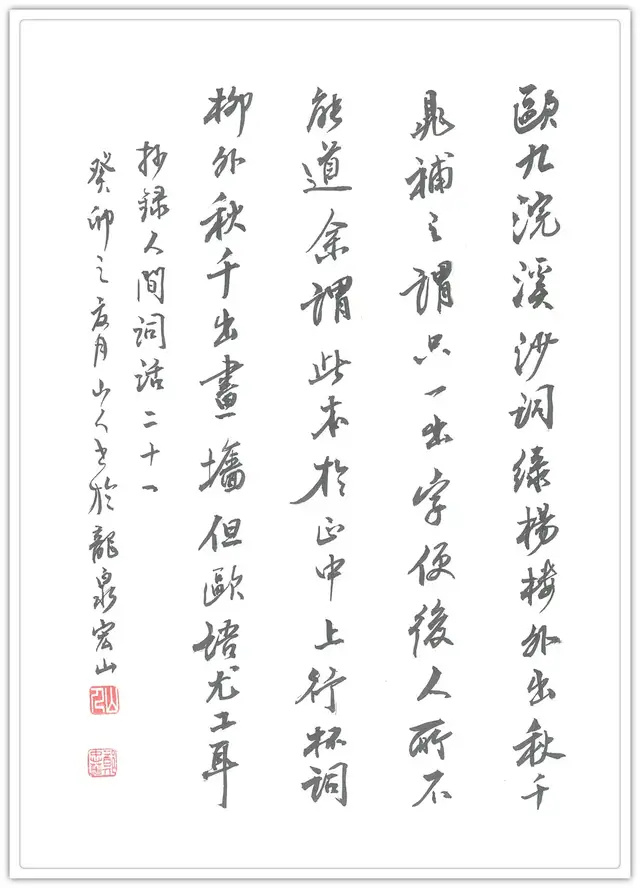 歐九浣溪沙詞綠楊樓外出秋千
晁補之謂只一出字便後人所不
能道余謂此本於正中上行杯詞
柳外秋千出畫墻但歐語尤工耳
抄録人間詞話二十一
癸卯之夜月山人書於龍泉宏山
山人